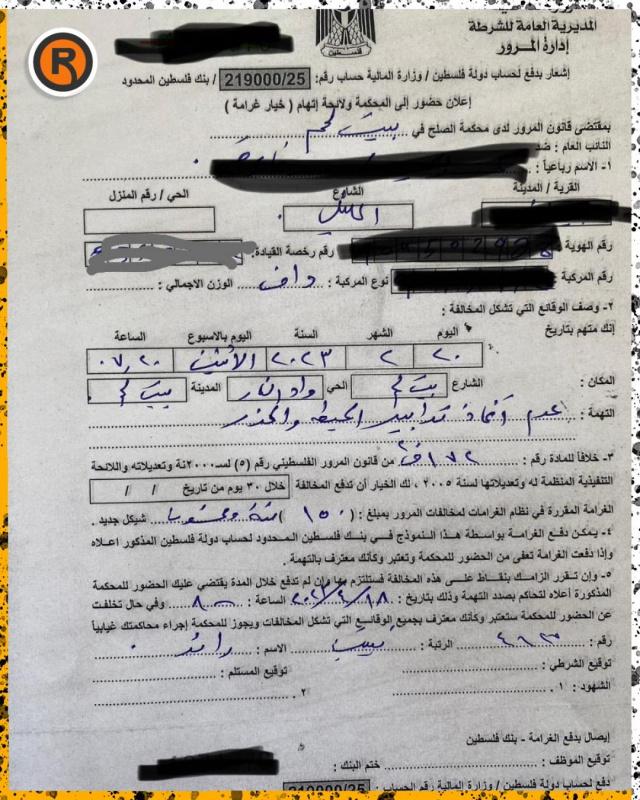 R
المديرية العامة للشرطة
إدارة المرور
فلسطين
إشعار بدفع لحساب دولة فلسطين / وزارة المالية حساب رقم: 219000/25 / بنك فلسطين المحدود
إعلان حضور إلى المحكمة ولائحة إتهام ( خيار غرامة )
بمقتضى قانون المرور لدى محكمة الصلح في بيت لحم
النائب العام : ضد
١- الاسم رباعياً :
القرية / المدينة الشارع الحي / رقم المنزل
الخليل
رقم الهوية رقم رخصة القيادة:
رقم المركبة نوع المركبة : الوزن الاجمالي :
٢- وصف الوقائع التي تشكل المخالفة :
إنك متهم بتاريخ
اليوم الشهر السنة اليوم بالاسبوع الساعة
٢٠ ٢ ٢٠٢٣ الاثنين ٠٧,٢٠
المكان : الشارع بيت لحم الحي واد النار المدينة بيت لحم
التهمة : عدم اتخاذ تدابير الحيطة والحذر
٣- خلافاً للمادة رقم : من قانون المرور الفلسطيني رقم (٥) لسـ٢٠٠٠ـنة وتعديلاته واللائحة
التنفيذية المنظمة له وتعديلاتها لسنة ٢٠٠٥ ، لك الخيار أن تدفع المخالفة خلال ٣٠ يوم من تاريخ / /
الغرامة المقررة في نظام الغرامات لمخالفات المرور بمبلغ : ( ١٥٠ ) مئة وخمسون شيكل جديد .
٤- يمكن دفع الغرامة بواسطة هذا النموذج في بنك فلسطين المحدود لحساب دولة فلسطين المذكور اعلاه
وإذا دفعت الغرامة تعفى من الحضور للمحكمة وتعتبر وكأنك معترف بالتهمة .
٥- وإن تقرر الزامك بنقاط على هذه المخالفة فستلتزم بها وإن لم تدفع خلال المدة يقتضي عليك الحضور للمحكمة
المذكورة أعلاه لتحاكم بصدد التهمة وذلك بتاريخ : الساعة : ٨ وفي حال تخلفت
عن الحضور للمحكمة ستعتبر وكأنك معترف بجميع الوقائع التي تشكل المخالفات ويجوز للمحكمة إجراء محاكمتك غيابياً
رقم : الرتبة : نقيب الاسم : رائد
توقيع الشرطي : توقيع المستلم :
الشهود : ١ . ٢ .
إيصال بدفع الغرامة - بنك فلسطين
توقيع الموظف : ختم البنك :
دفع لحساب دولة فلسطين / وزارة المالية رقم الحساب : 219000/25